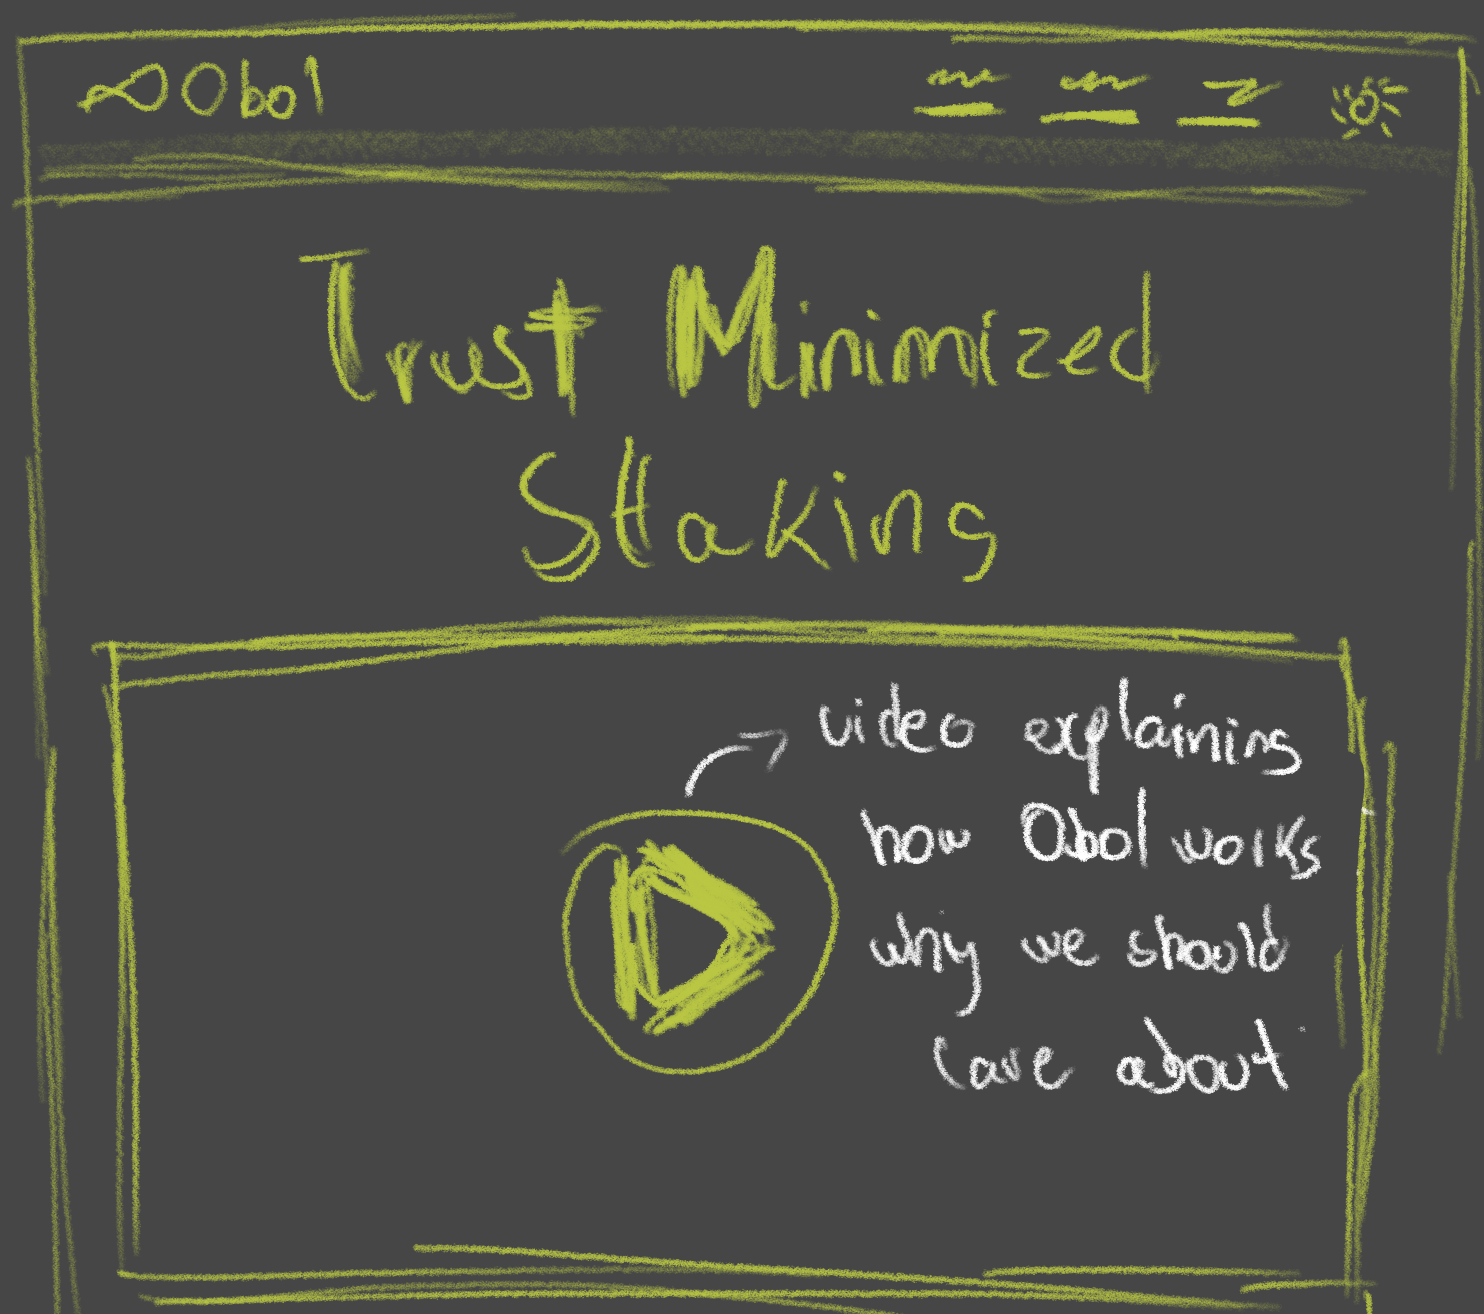 Obol
Trust Minimized
Staking
video explaining
how Obol works
why we should
care about